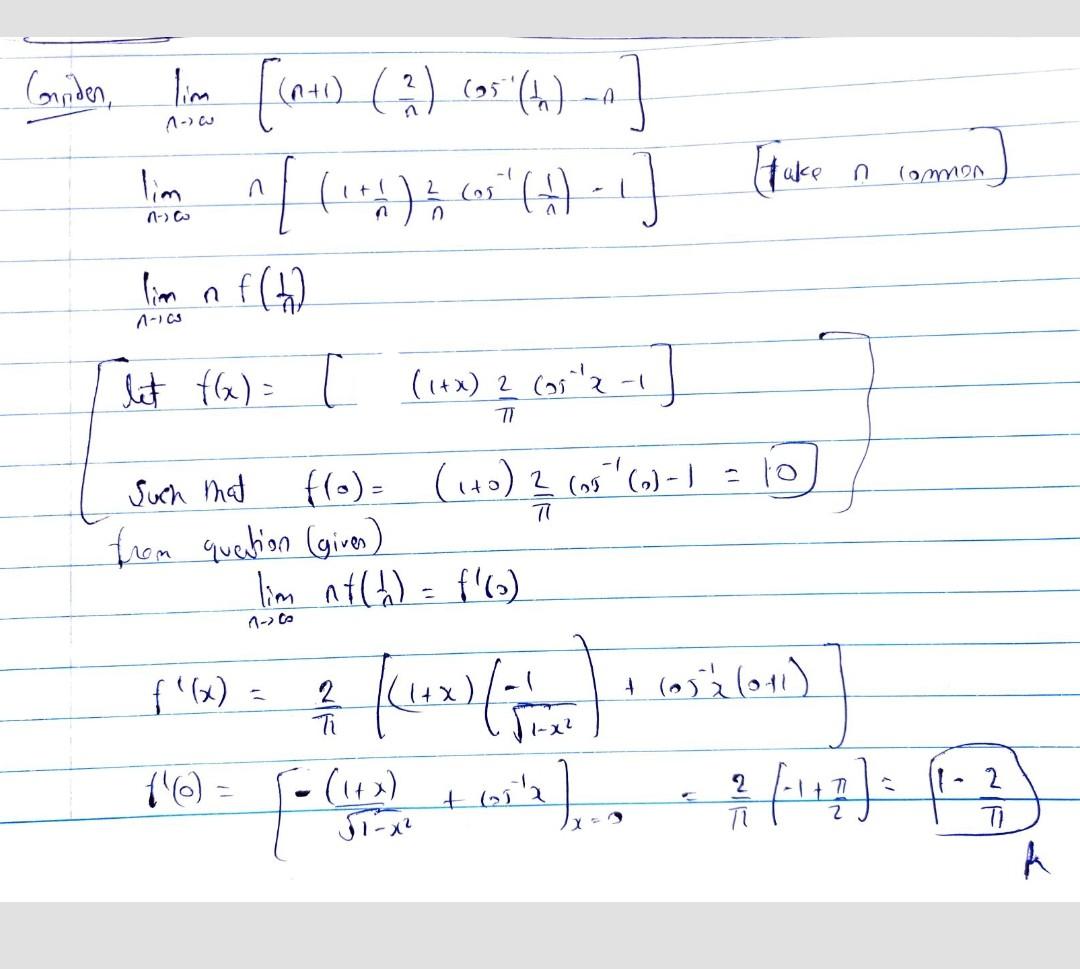 Consider, lim n→∞ [(n+1) (2/n) cos⁻¹(1/n) -n]
lim n→∞ n[(1+1/n) 2/n cos⁻¹(1/n) - 1] [take n common]
lim n→∞ n f(1/n)
let f(x) = [ (1+x) 2/π cos⁻¹x -1]
such that f(0) = (1+0) 2/π cos⁻¹(0) -1 = 0
from question (given)
lim n→∞ nf(1/n) = f'(0)
f'(x) = 2/π [(1+x)(-1/√1-x²) + cos⁻¹x (0+1)]
f'(0) = [-(1+x)/√1-x² + cos⁻¹x]x=0 = 2/π [-1+π/2] = 1 - 2/π